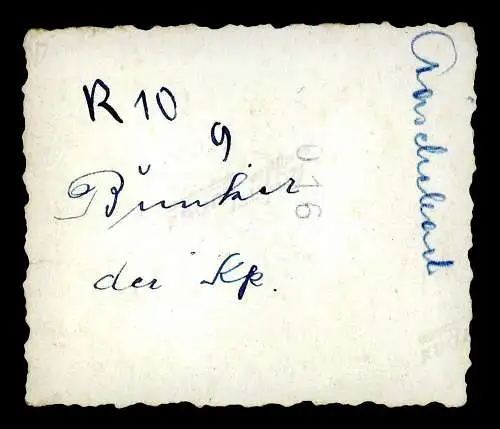 R 10
9
Bunker
der Kp.
016